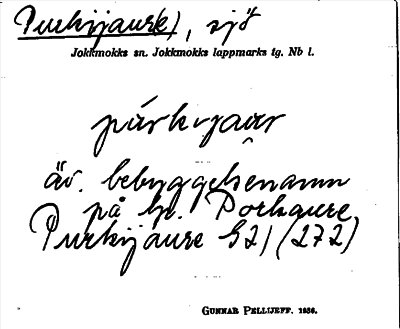 Purkijaur(e), sjö
Jokkmokks sn. Jokkmokks lappmarks tg. Nb l.
pårkvjaur
äv. bebyggelsenamn
på bl. Porkaure,
Purkijaure 52) (272)
GUNNAR PELLIJEFF. 1956.